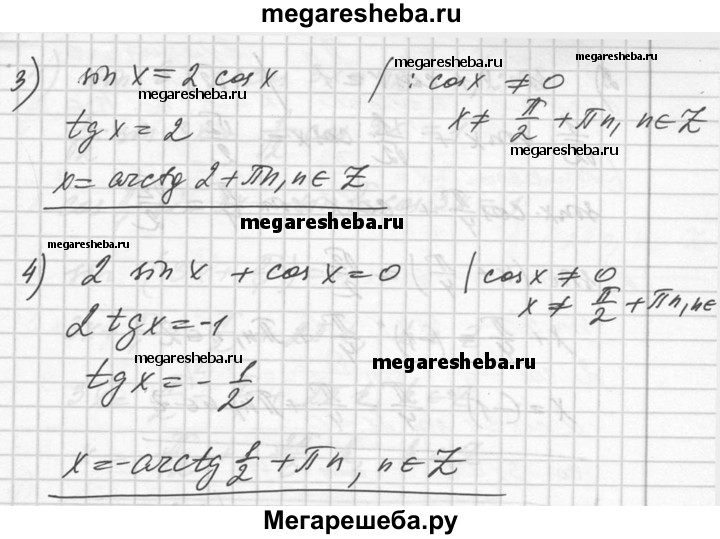 megaresheba.ru
3) sin x = 2 cos x / : cos x ≠ 0
megaresheba.ru megaresheba.ru megaresheba.ru
tg x = 2 x ≠ π/2 + πn, n ∈ Z
megaresheba.ru
x = arctg 2 + πn, n ∈ Z
megaresheba.ru
megaresheba.ru
4) 2 sin x + cos x = 0 | cos x ≠ 0
x ≠ π/2 + πn, n ∈
2 tg x = -1
megaresheba.ru megaresheba.ru
tg x = - 1/2
x = -arctg 1/2 + πn, n ∈ Z
Мегарешеба.ру